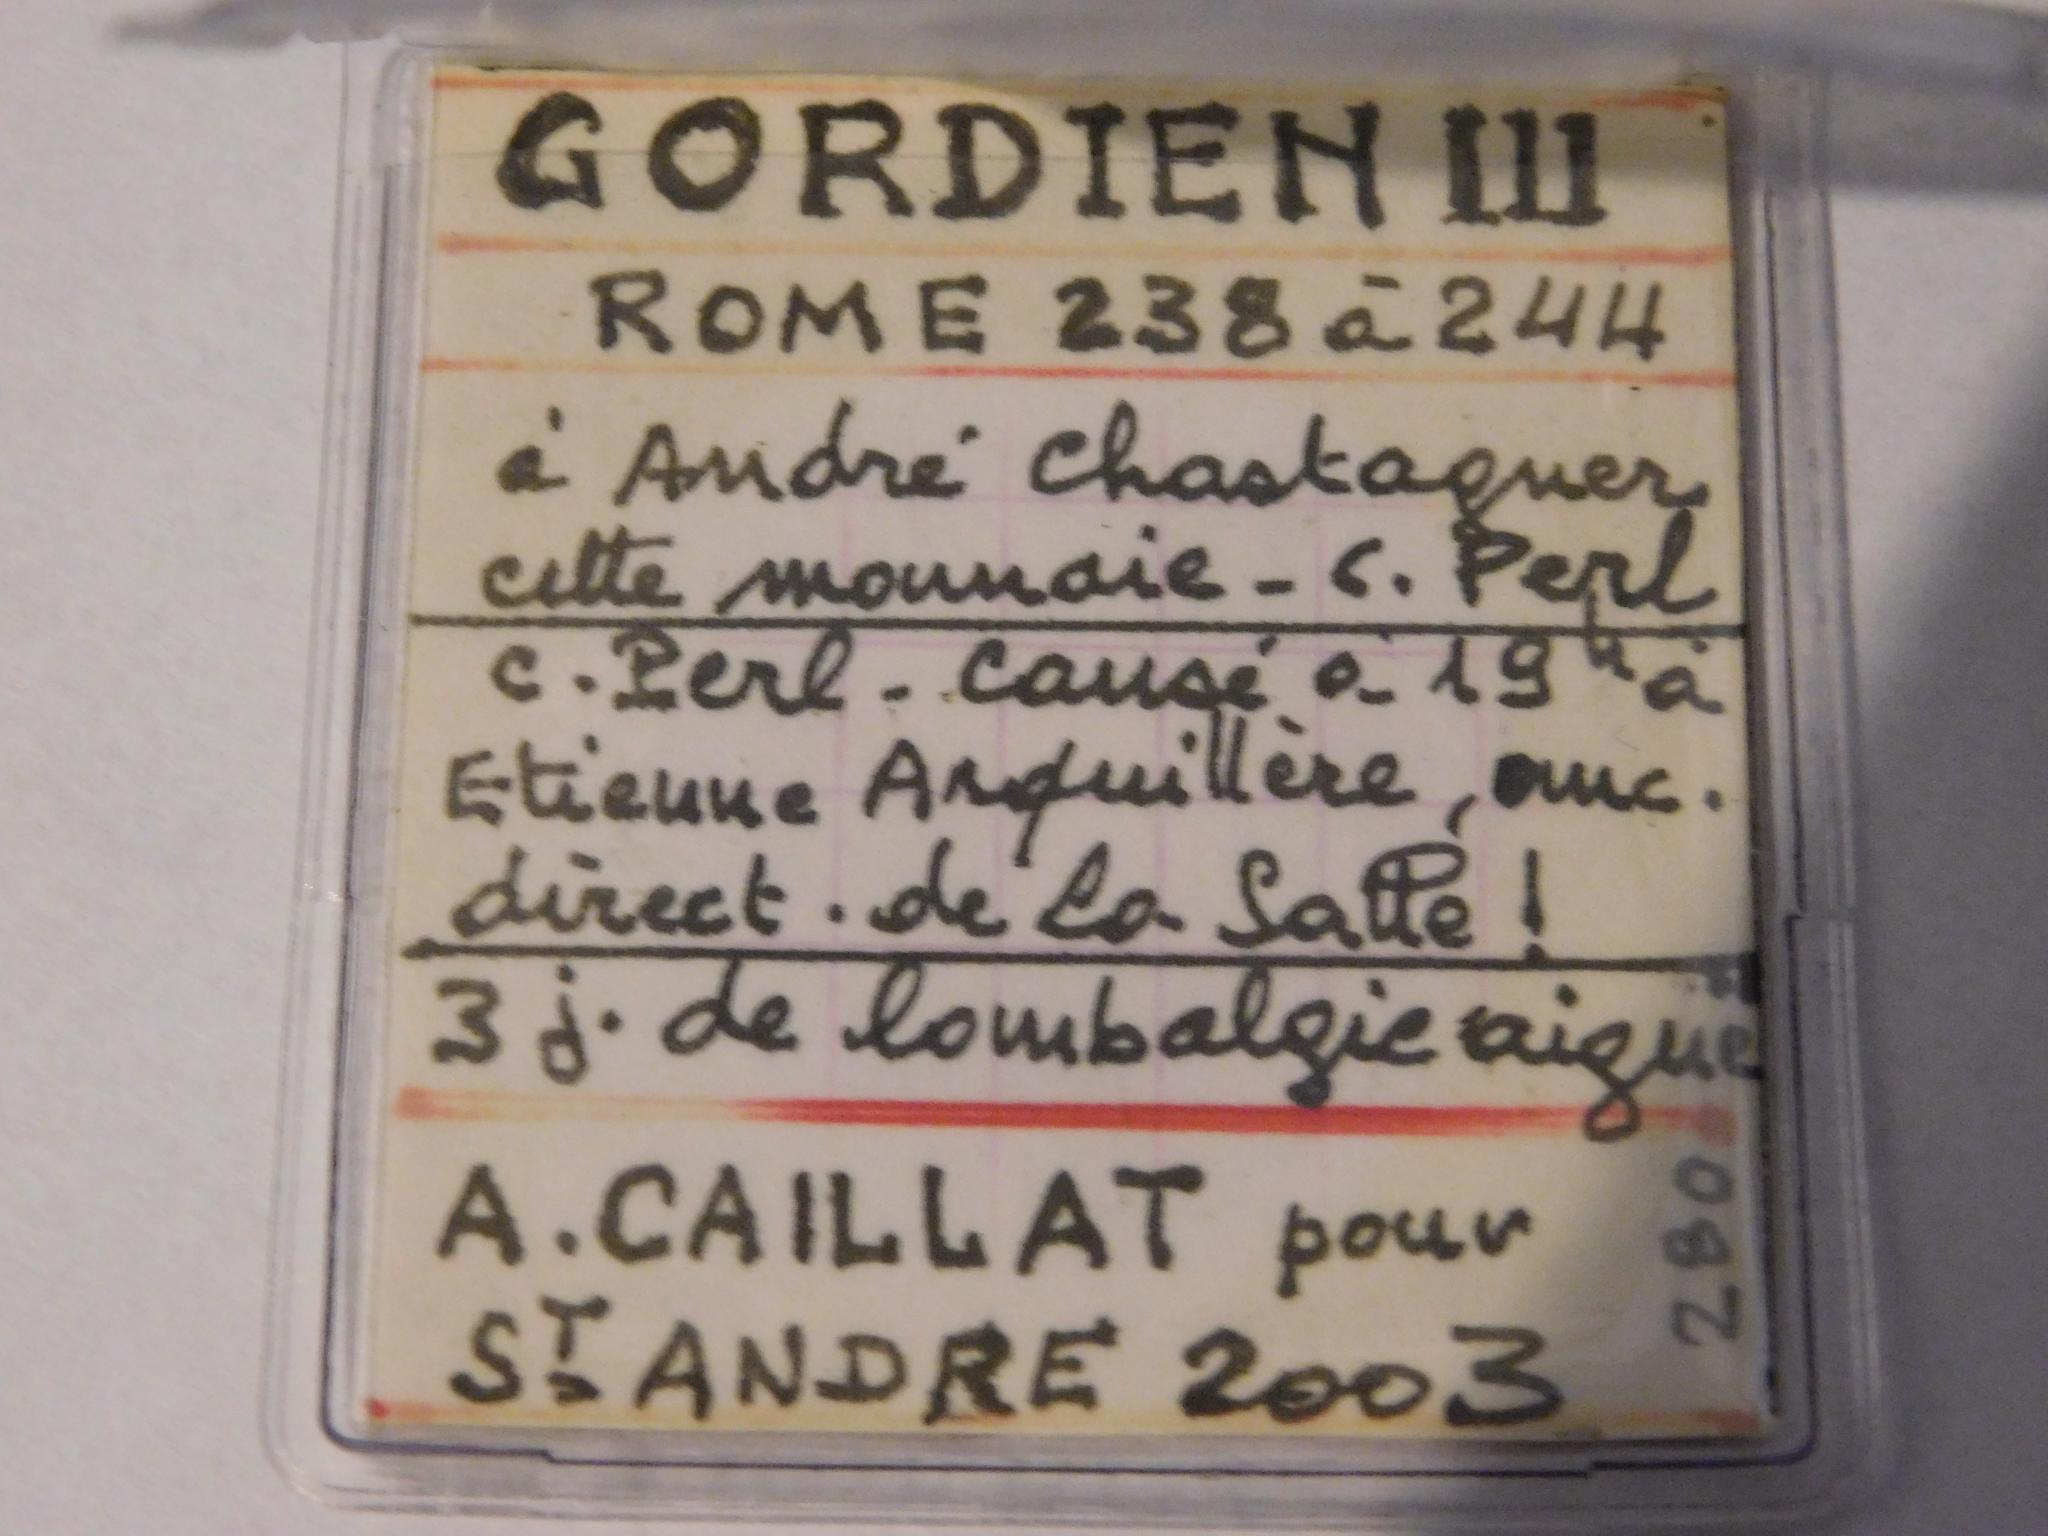 GORDIEN III
ROME 238 à 244
à André Chastagner
cette monnaie - C. Perl
C. Perl - causé à 19h à
Etienne Arquillère, anc.
direct. de La Salle !
3 j. de lombalgie aiguë
A. CAILLAT pour
ST ANDRE 2003
280